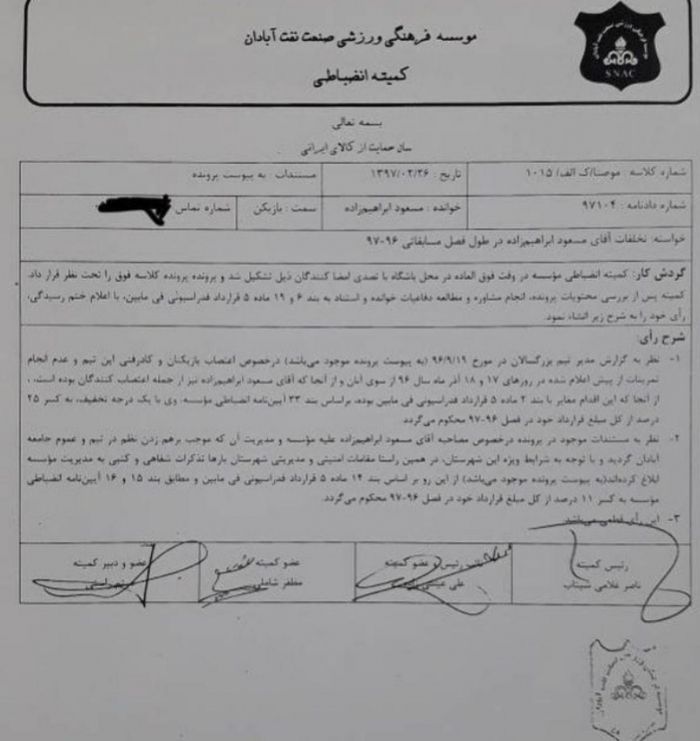 موسسه فرهنگی ورزشی صنعت نفت آبادان
کمیته انضباطی
SNAC
بسمه تعالی
سال حمایت از کالای ایرانی
شماره کلاسه : موصنا/ک الف/ ۱۰۱۵
تاریخ : ۱۳۹۷/۰۲/۲۶
مستندات : به پیوست پرونده
شماره دادنامه : ۹۷۱۰۴
خوانده : مسعود ابراهیم‌زاده
سمت : بازیکن
شماره تماس
خواسته: تخلفات آقای مسعود ابراهیم‌زاده در طول فصل مسابقاتی ۹۶-۹۷
گردش کار: کمیته انضباطی مؤسسه در وقت فوق العاده در محل باشگاه با تصدی امضا کنندگان ذیل تشکیل شد و پرونده پرونده کلاسه فوق را تحت نظر قرار داد.
کمیته پس از بررسی محتویات پرونده، انجام مشاوره و مطالعه دفاعیات خوانده و استناد به بند ۶ و ۱۹ ماده ۵ قرارداد فدراسیونی فی مابین، با اعلام ختم رسیدگی،
رأی خود را به شرح زیر انشاء نمود.
شرح رأی:
۱- نظر به گزارش مدیر تیم بزرگسالان در مورخ ۹۶/۹/۱۹ (به پیوست پرونده موجود می‌باشد) درخصوص اعتصاب بازیکنان و کادرفنی این تیم و عدم انجام
تمرینات از پیش اعلام شده در روزهای ۱۷ و ۱۸ آذر ماه سال ۹۶ از سوی آنان و از آنجا که آقای مسعود ابراهیم‌زاده نیز از جمله اعتصاب کنندگان بوده است ،
از آنجا که این اقدام مغایر با بند ۲ ماده ۵ قرارداد فدراسیونی فی مابین بوده، براساس بند ۳۳ آیین‌نامه انضباطی مؤسسه، وی با یک درجه تخفیف، به کسر ۲۵
درصد از کل مبلغ قرارداد خود در فصل ۹۶-۹۷ محکوم می‌گردد
۲- نظر به مستندات موجود در پرونده درخصوص مصاحبه آقای مسعود ابراهیم‌زاده علیه مؤسسه و مدیریت آن که موجب برهم زدن نظم در تیم و عموم جامعه
آبادان گردید و با توجه به شرایط ویژه این شهرستان، در همین راستا مقامات امنیتی و مدیریتی شهرستان بارها تذکرات شفاهی و کتبی به مدیریت مؤسسه
ابلاغ کرده‌اند(به پیوست پرونده موجود می‌باشد) از این رو بر اساس بند ۱۲ ماده ۵ قرارداد فدراسیونی فی مابین و مطابق بند ۱۵ و ۱۶ آیین‌نامه انضباطی
مؤسسه به کسر ۱۱ درصد از کل مبلغ قرارداد خود در فصل ۹۶-۹۷ محکوم می‌گردد.
۳- این رأی قطعی می‌باشد
رئیس کمیته
ناصر غلامی شیتاب
نایب رئیس و عضو کمیته
علی
عضو کمیته
مظفر شاملی
عضو و دبیر کمیته